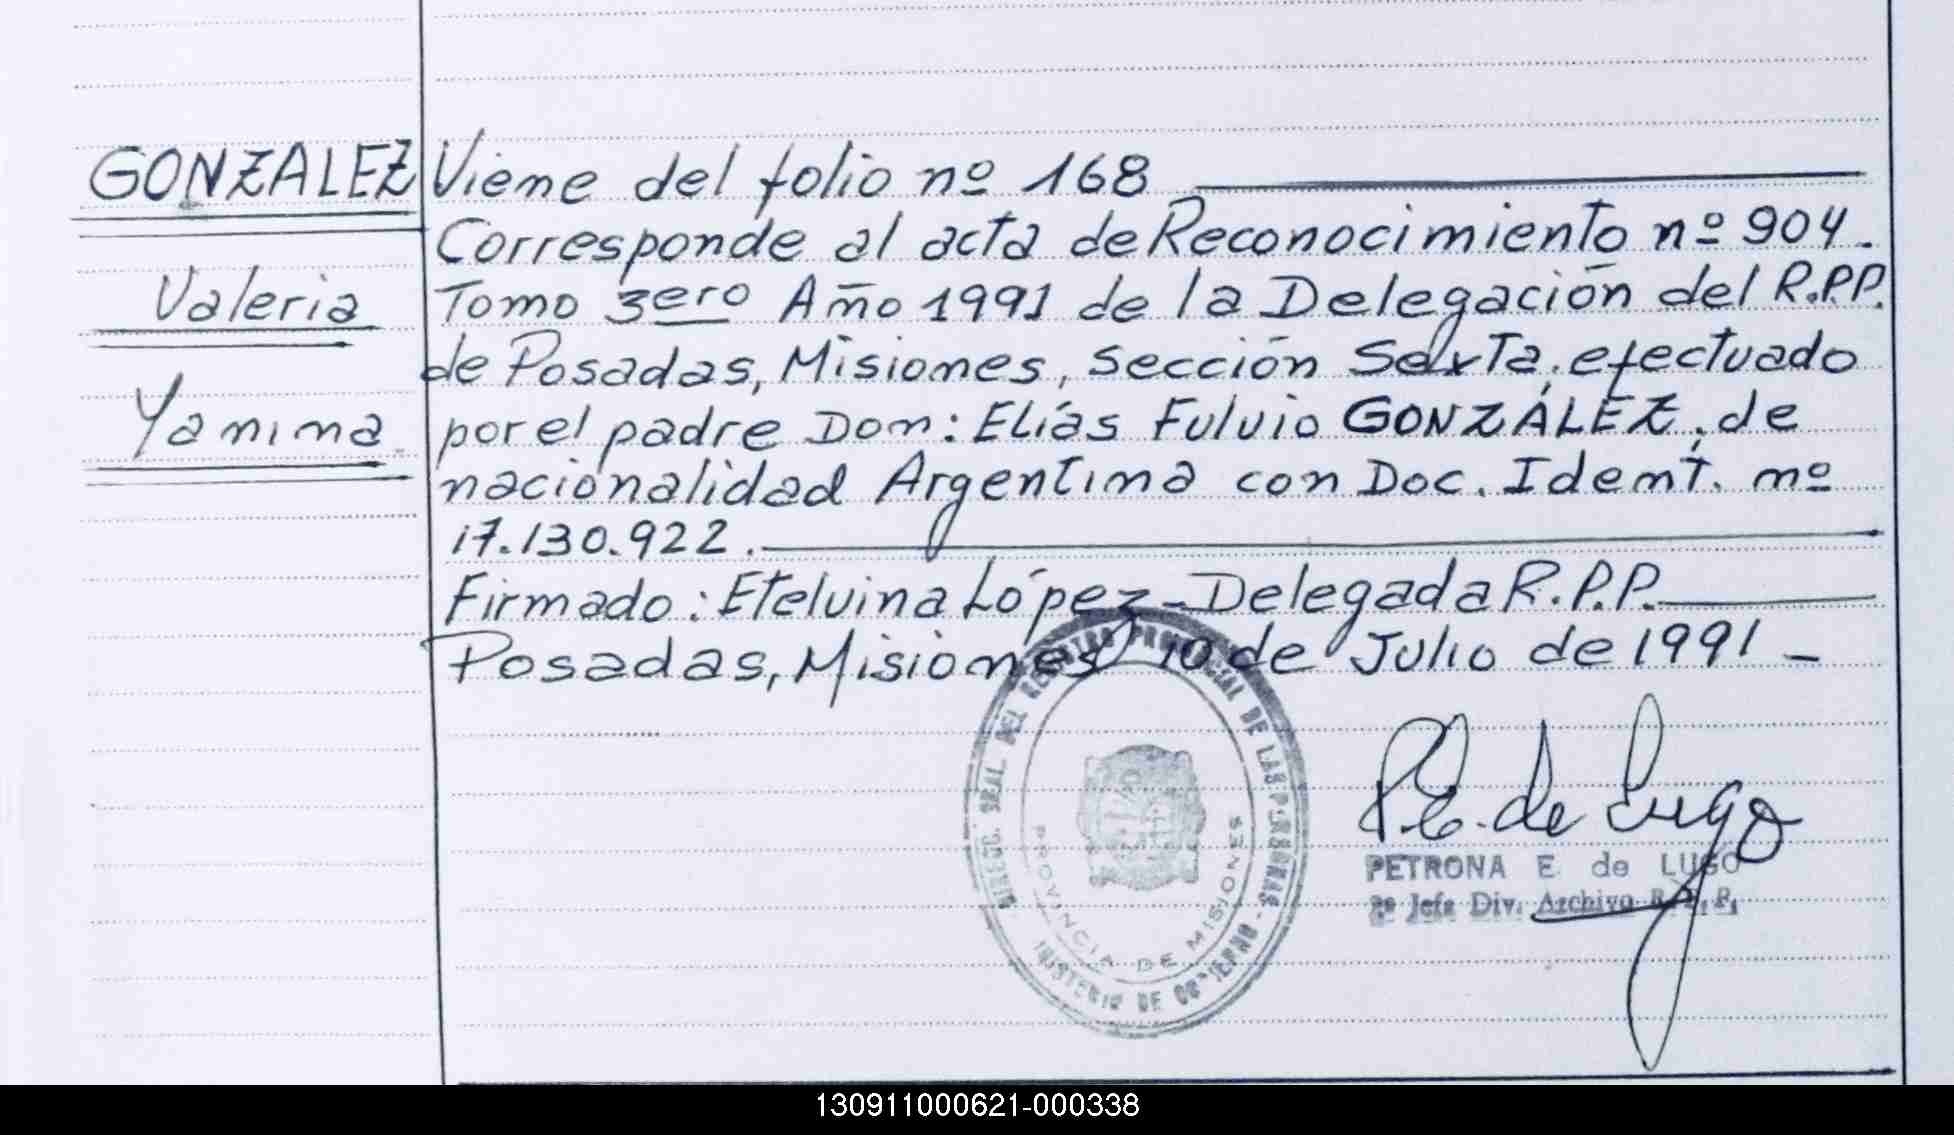 GONZALEZ
Valeria
Yanina
Viene del folio nº 168
Corresponde al acta de Reconocimiento nº 904.
Tomo 3ero Año 1991 de la Delegación del R.P.P.
de Posadas, Misiones, Sección Sexta, efectuado
por el padre Don: Elías Fulvio GONZÁLEZ, de
nacionalidad Argentina con Doc. Ident. nº
17.130.922.
Firmado: Etelvina López - Delegada R.P.P.
Posadas, Misiones 10 de Julio de 1991 -
DIRECC. GRAL. DEL REGISTRO PROVINCIAL DE LAS PERSONAS -
MINISTERIO DE GOBIERNO
PROVINCIA DE MISIONES
P.E. de Lugo
PETRONA E. de LUGO
2º Jefa Div. Archivo R.P.P.
130911000621-000338